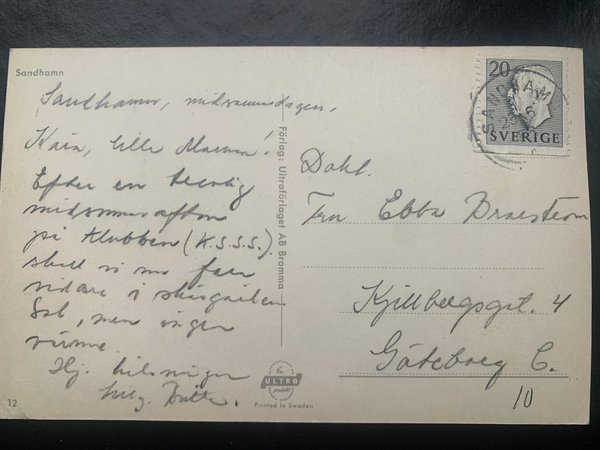 Sandhamn
Sandhamn, midsommardagen,
Kära, lilla Mamma!
Efter en trevlig
midsommarafton
på Klubben (K.S.S.S.)
skall vi nu fara
vidare i skärgården
Sol, men ingen
värme
Hj. hälsningar
12
Förlag: Ultraförlaget AB Bromma
ULTRA
Printed in Sweden
20
SVERIGE
SANDHAMN
Fru Ebba Braeström
Kjellbergsgat. 4
Göteborg C.
10